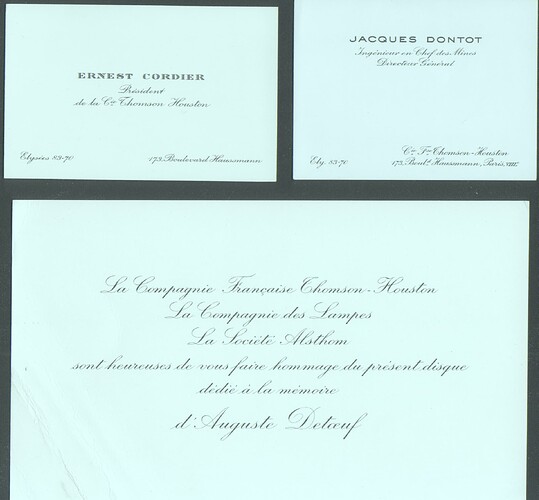 ERNEST CORDIER
Président
de la Cie Thomson Houston
Elysées 83-70
173, Boulevard Haussmann
JACQUES DONTOT
Ingénieur en Chef des Mines
Directeur Général
Ely. 83-70
Cie Fse Thomson-Houston
173, Boulᵈ Haussmann, Paris, VIIIᵉ
La Compagnie Française Thomson-Houston
La Compagnie des Lampes
La Société Alsthom
sont heureuses de vous faire hommage du présent disque
dédié à la mémoire
d'Auguste Detœuf